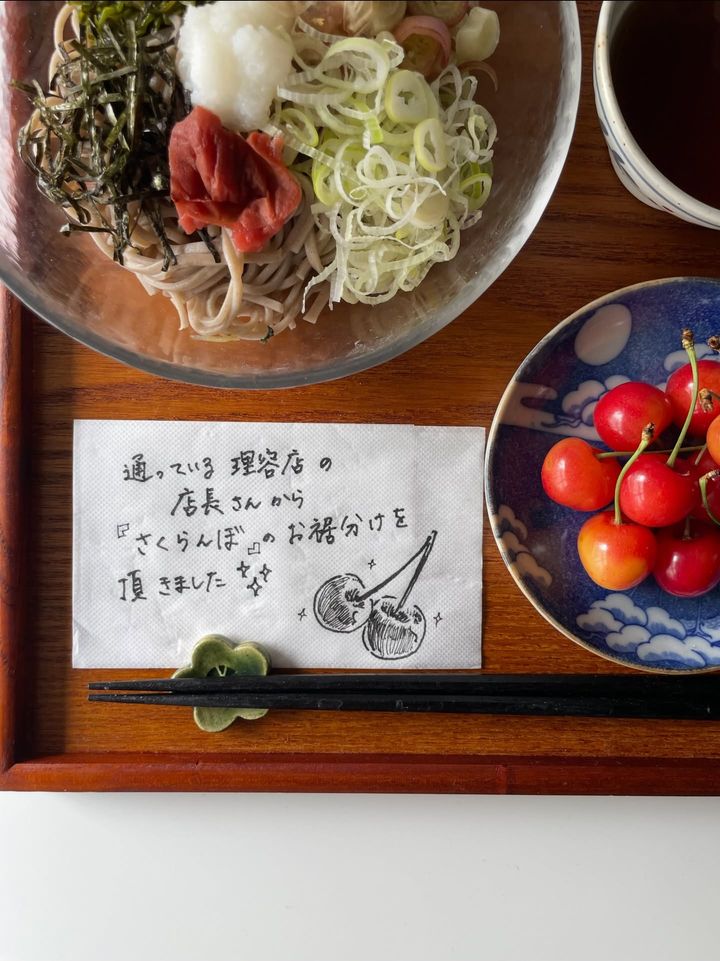 通っている 理容店の
店長さんから
『さくらんぼ』のお裾分けを
頂きました